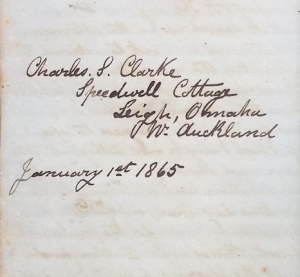 Charles. S. Clarke
Speedwell Cottage
Leigh, Omaha
Nr. Auckland
January 1st 1865